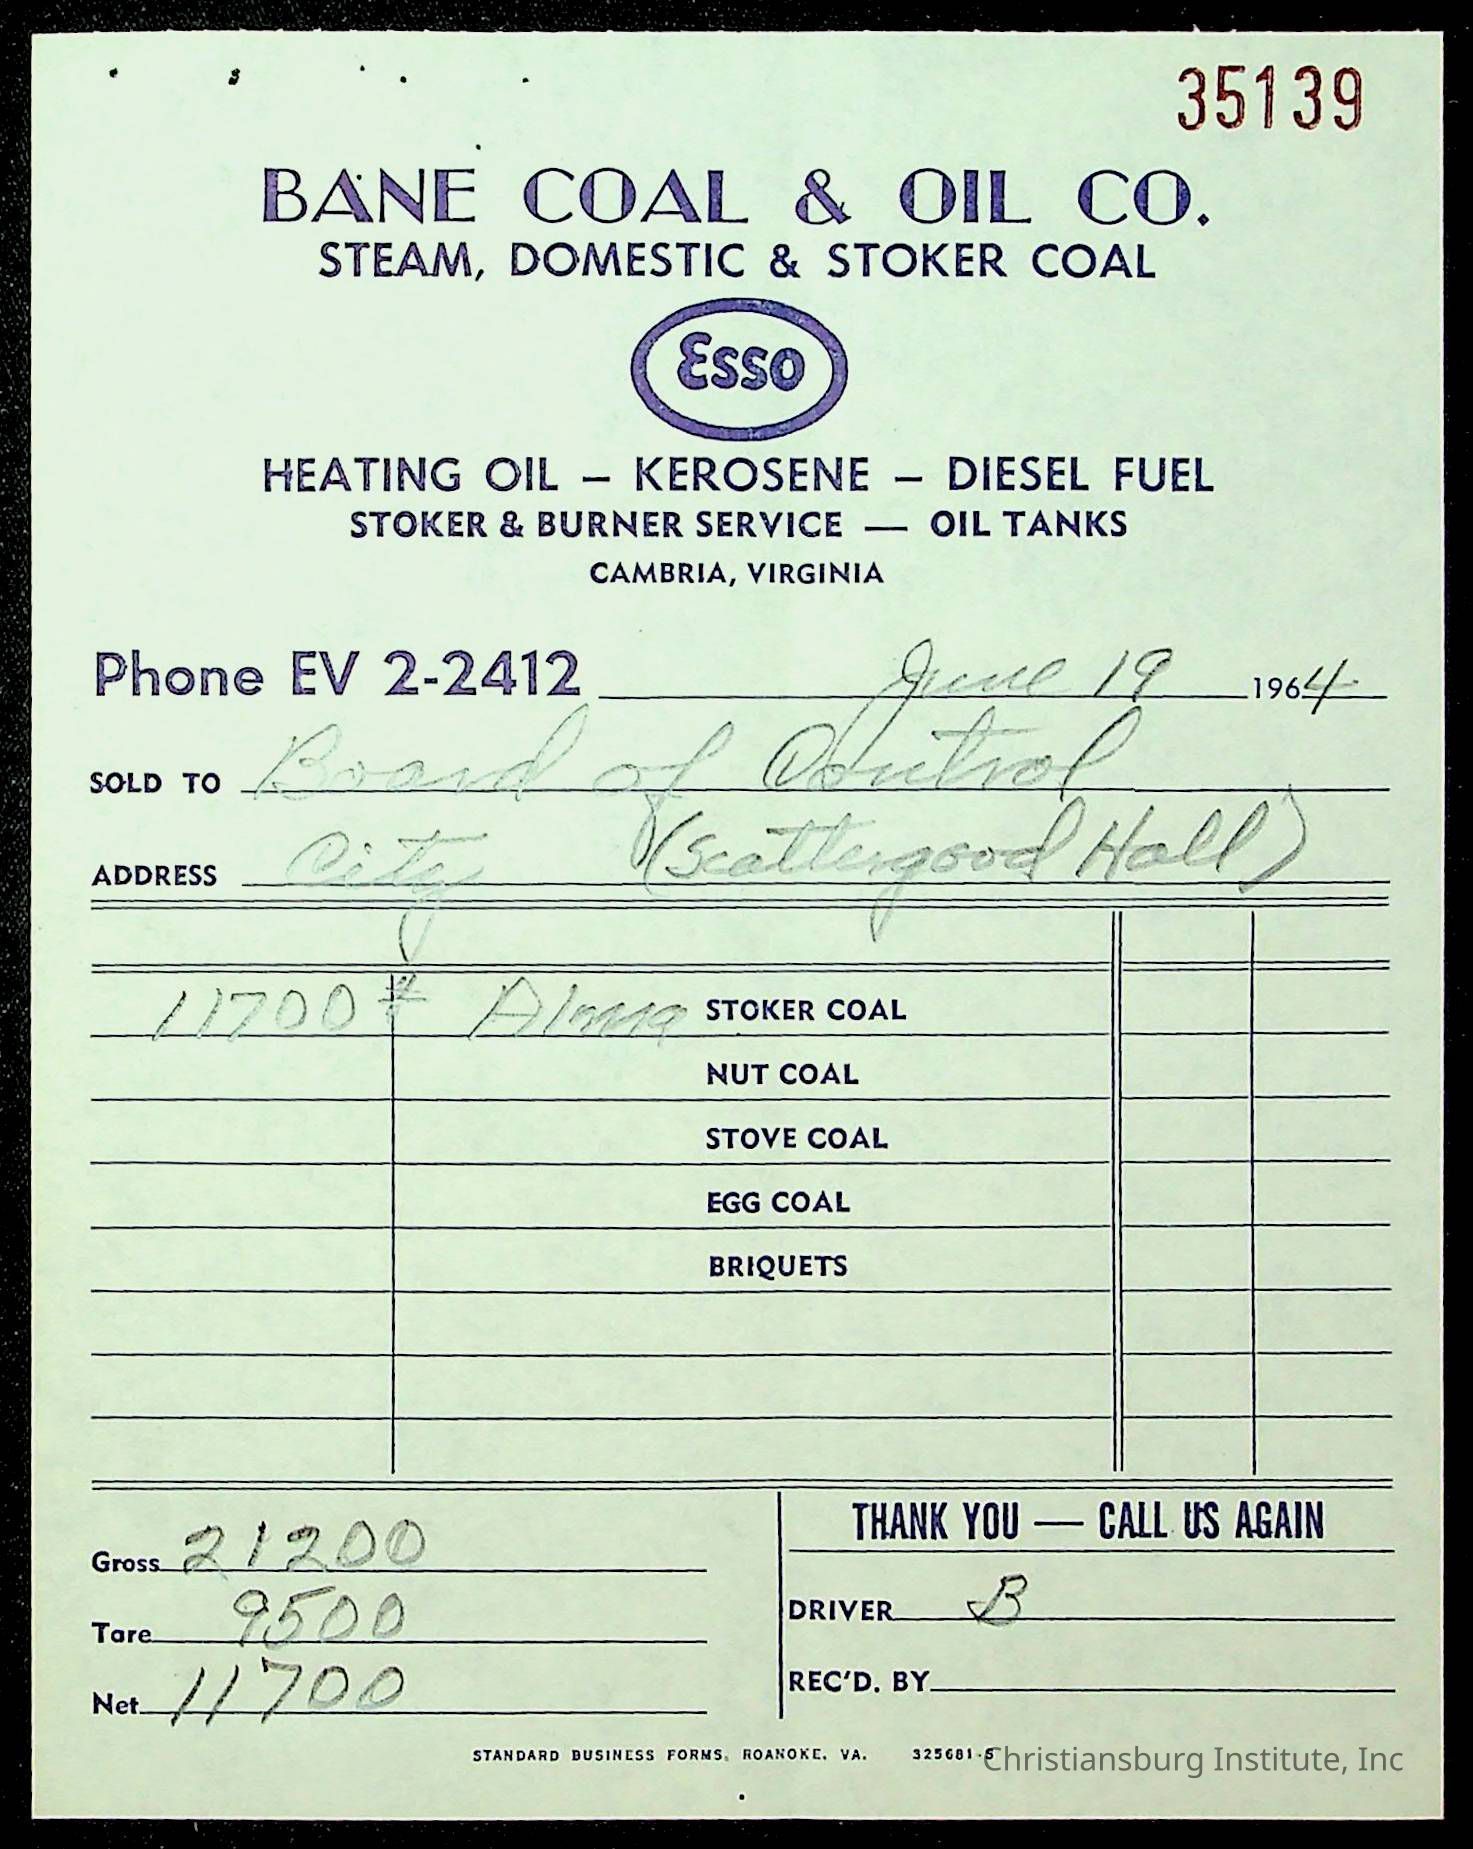 35139
BANE COAL & OIL CO.
STEAM, DOMESTIC & STOKER COAL
Esso
HEATING OIL – KEROSENE – DIESEL FUEL
STOKER & BURNER SERVICE — OIL TANKS
CAMBRIA, VIRGINIA
Phone EV 2-2412 June 19 1964
SOLD TO Board of Control
ADDRESS City (Scattergood Hall)
11700 # STOKER COAL
NUT COAL
STOVE COAL
EGG COAL
BRIQUETS
THANK YOU — CALL US AGAIN
Gross 21200
Tare 9500
Net 11700
DRIVER B
REC'D. BY
STANDARD BUSINESS FORMS, ROANOKE, VA. 325681-S
Christiansburg Institute, Inc